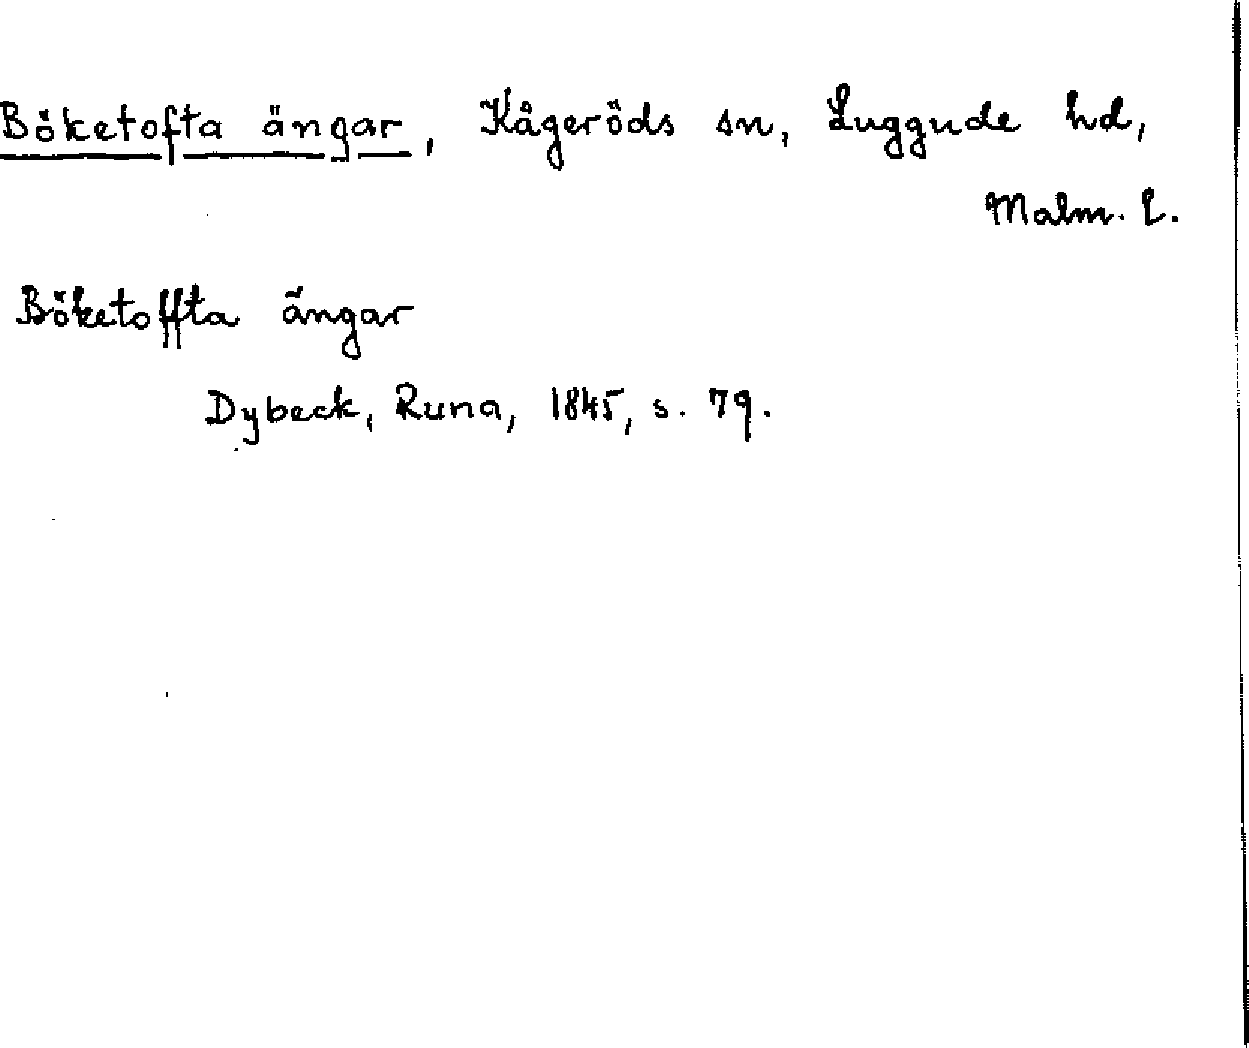 Böketofta ängar, Kågeröds sn, Luggude hd,
Malm. l.
Böketoffta ängar
Dybeck, Runa, 1845, s. 79.